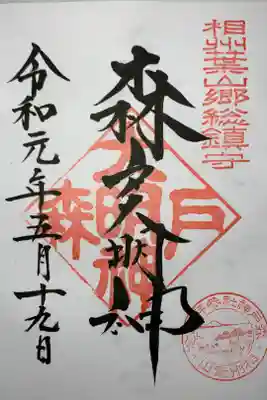 相州葉山郷総鎮守
森戸大明神
森戸大明神
令和元年五月十九日